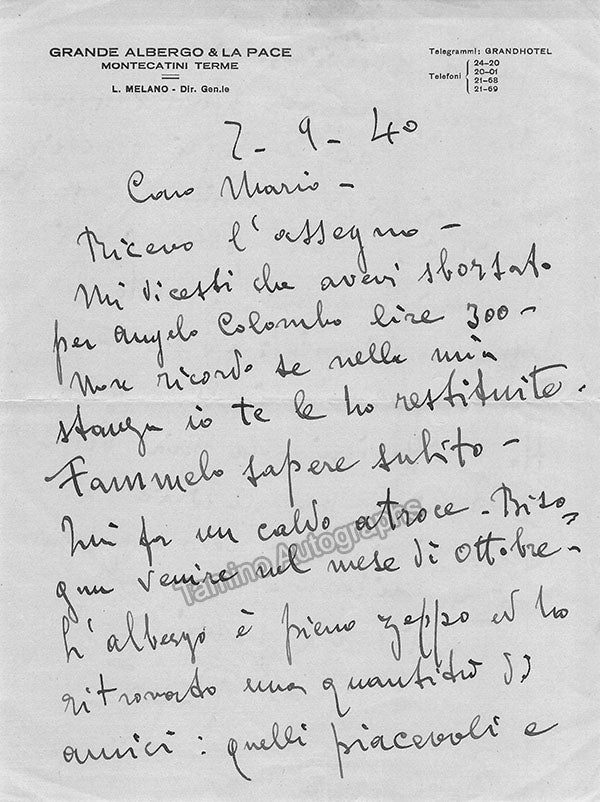 GRANDE ALBERGO & LA PACE
MONTECATINI TERME
L. MELANO - Dir. Gen.le
Telegrammi: GRANDHOTEL
Telefoni
24-20
20-01
21-68
21-69
7 - 9 - 40
Caro Mario -
Ricevo l'assegno -
Mi dicesti che avevi sborsato
per Angelo Colombo lire 300 -
Non ricordo se nella mia
stanza io te le ho restituite.
Fammelo sapere subito -
Qui fa un caldo atroce - Biso=
gna venire nel mese di Ottobre -
L'albergo è pieno zeppo ed ho
ritrovato una quantità di
amici : quelli piacevoli e
Tamino Autographs